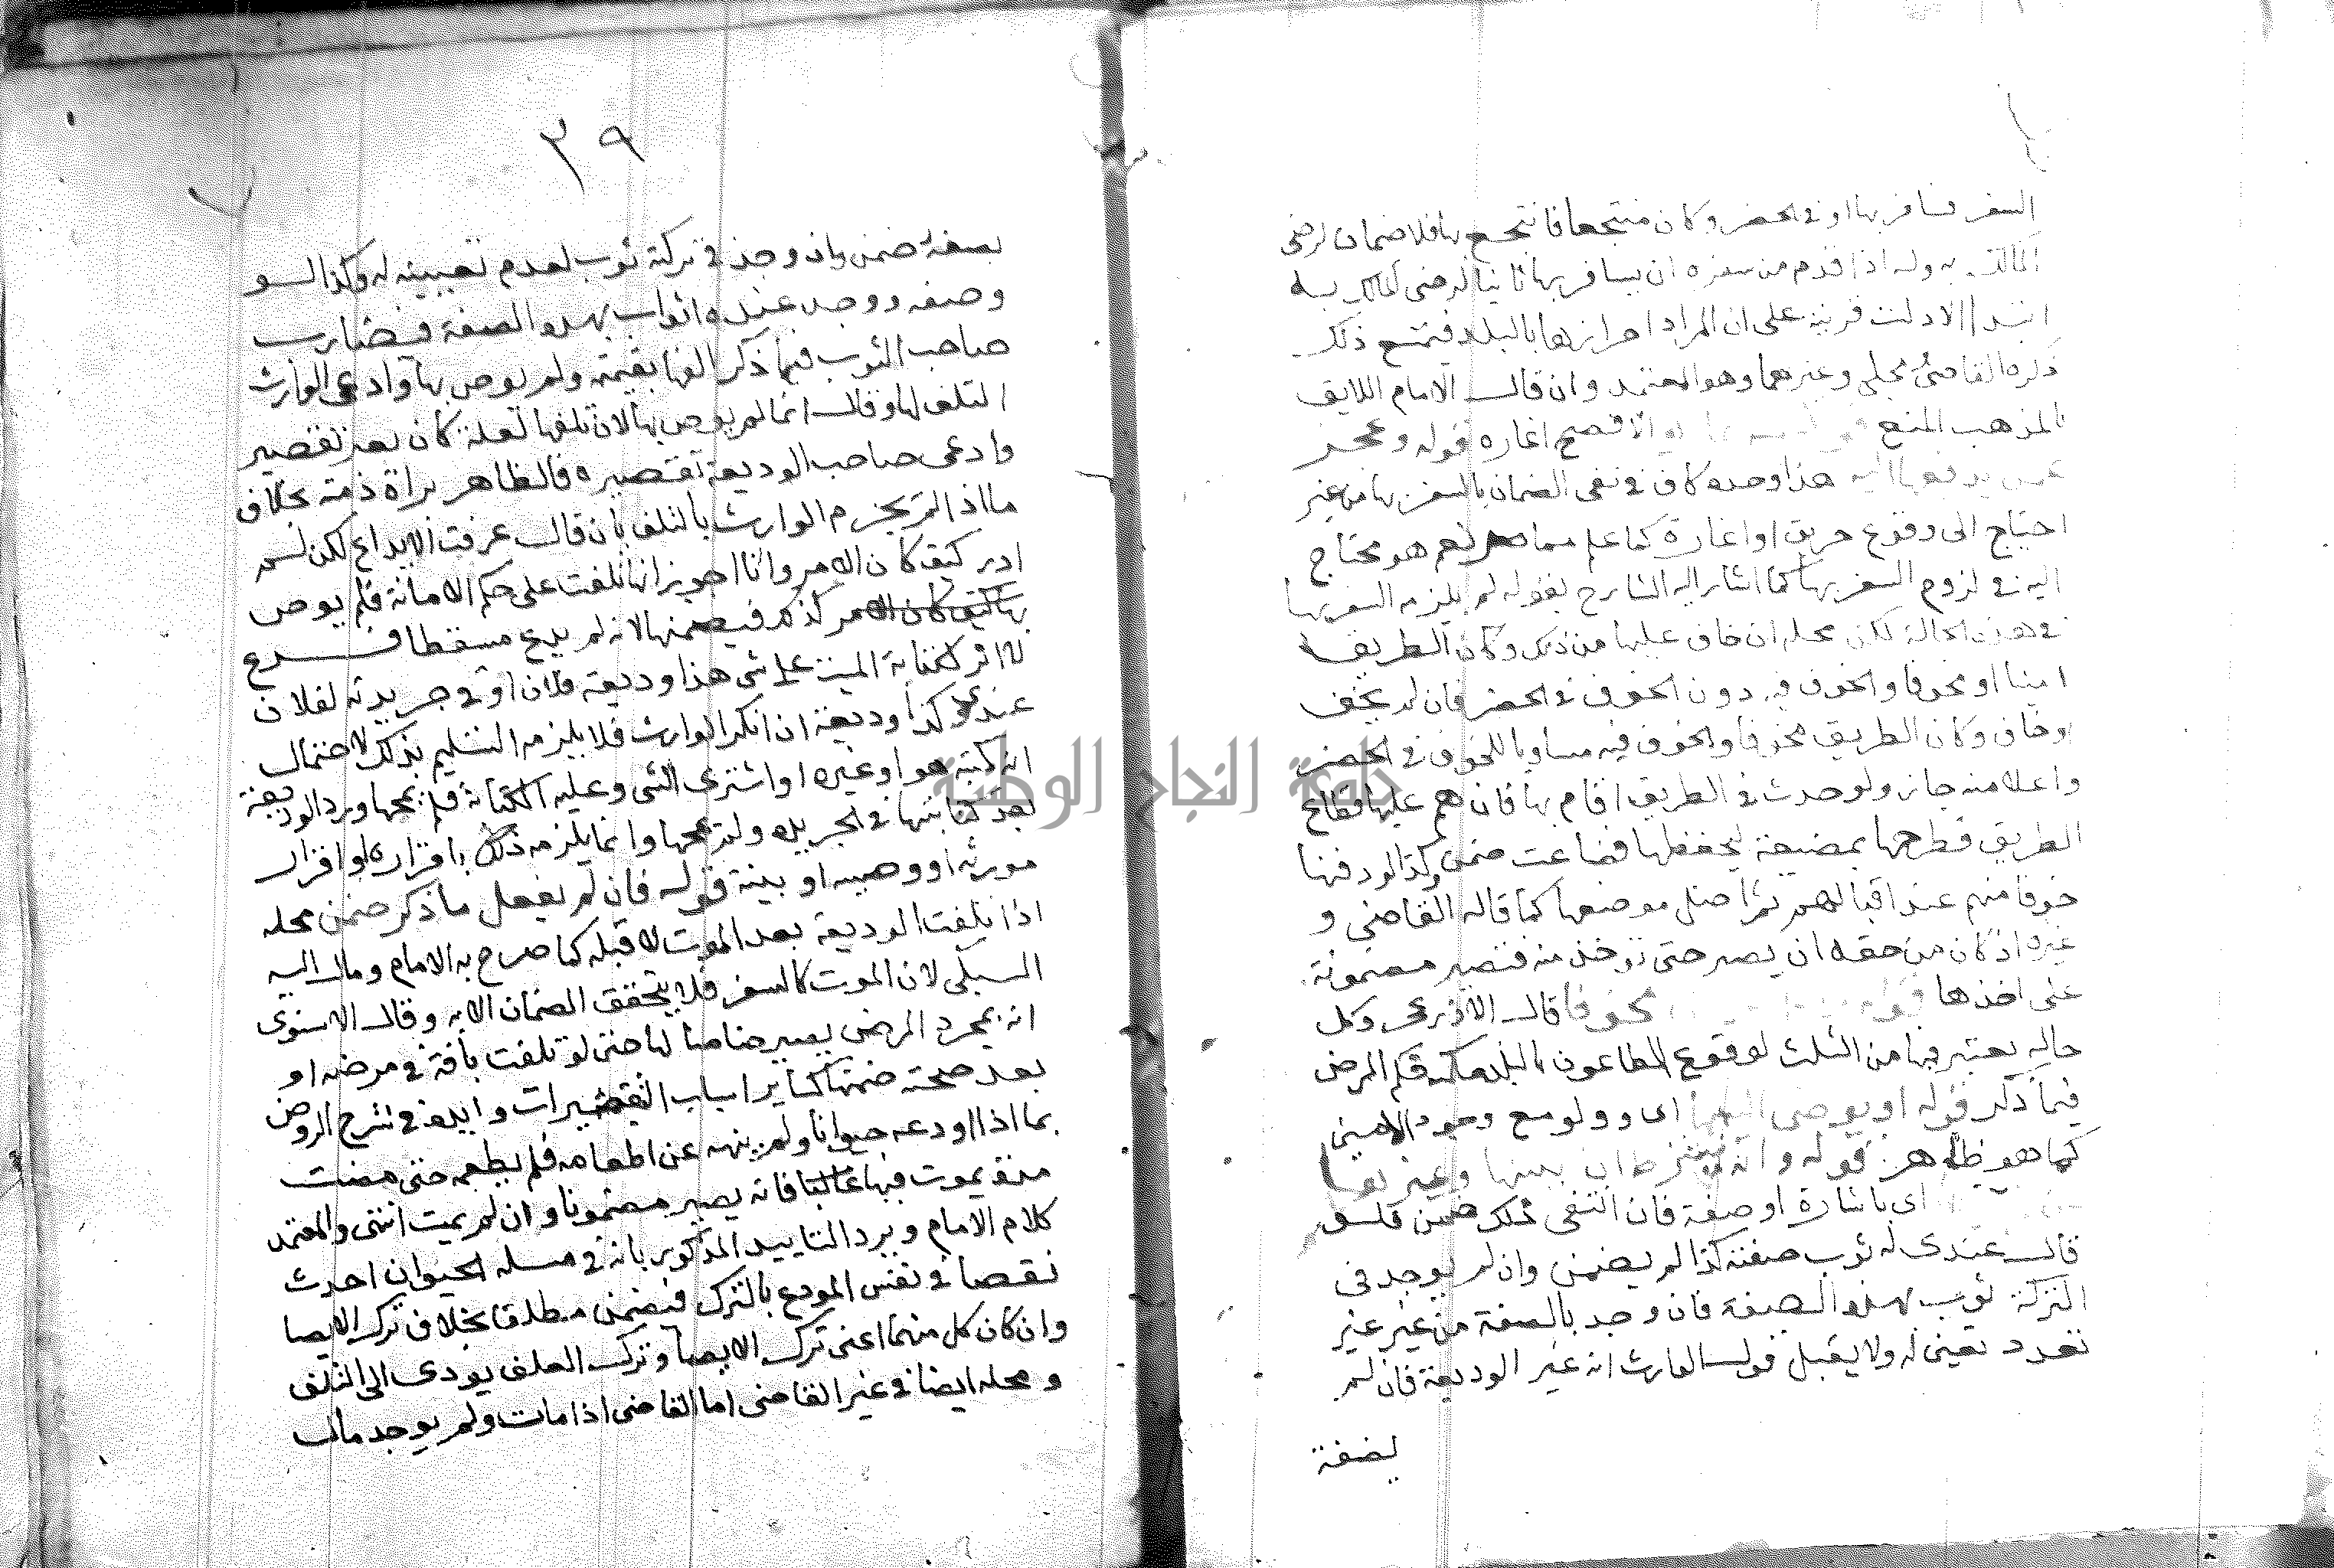 السفر فسافر بها او في الحضر وكان منتجعا فانتجع بها فلا ضمان لرضى
المالك به وله اذا قدم من سفره ان يسافر بها ثانيا لرضى المالك به
ابتدا الا دلت قرينة على ان المراد احرازها بالبلد فيمتنع ذلك
ذكره القاضى مجلى وغيرهما وهو المعتمد وان قال الامام اللايق
بالمذهب المنع الافصح اغارة قوله وعجز
عمن يدفعها اليه هذا وحده كاف في نفى الضمان بالسفر بها من غير
احتياج الى وقوع حريق او اغارة كما علم مما مر نعم هو محتاج
اليه في لزوم السفر بها كما اشار اليه الشارح بقوله لم يلزمه السفر بها
في هذه الحالة لكن محله ان خاف عليها من ذلك وكان الطريق
امينا او مخوفا والخوف فيه دون الخوف في الحضر فان لم يخف
اوخاف وكان الطريق مخوفا والخوف فيه مساويا للخوف في الحضر
واعلا منه جاز ولو حدث في الطريق اقام بها فان هجم عليها قطاع
الطريق فطرحها بمضيعة ليحفظها فضاعت ضمن وكذا لو دفنها
خوفا منهم عند اقبالهم ثم اضل موضعها كما قاله القاضي و
غيره اذ كان من حقه ان يصبر حتى توخذ منه فتصير مضمونة
على اخذها مخوفا قال الاذرعى وكل
حاله يعتبر فيها من الثلث لوقوع الطاعون بالبلد حكم المرض
فيما ذكر قوله او يوصى اليهما اى وولو مع وجود الامين
كما هو ظاهر قوله وانه يشترط ان يعينها وغير بها
اى باشارة او صفة فان انتفى ذلك ضمن فلو
قال عندى له ثوب صفته كذا لم يضمن وان لم يوجد فى
التركة ثوب بهذه الصفة فان وجد بالصفة من غير غير
تعدد تعين له ولا يقبل قول الوارث انه غير الوديعة فان لم
بصفة
٣٩
بصفة ضمن وان وجد في تركته ثوب لعدم تعيينه له وكذا لو
وصفه ووجد عنده اثواب بهذه الصفة فيضارب
صاحب الثوب فيما ذكر الفها بقيمته ولم يوص بها وادعى الوارث
التلف لها وقال انما لم يوص بها لان تلفها لعله كان بغير تقصير
وادعى صاحب الوديعة تقصيره فالظاهر براة ذمته بخلاف
ما اذا لم يجزم الوارث بالتلف بان قال عرفت الايداع لكن لم
ادر كيف كان الامر وانا اجوز انها تلفت على حكم الامانة فلم يوص
بها كيف كان الامر كذلك فيضمنها لانه لم يدع مسقطا فرع
لا اثر لكتابة الميت على شى هذا وديعة فلان او في جريدته لفلان
عندى كذا وديعة ان انكر الوارث فلا يلزمه التسليم بذلك لاحتمال
انه كتبه هو او غيره او اشترى الشى وعليه الكتابة فلم يمحها ورد الوديعة
بعد كتابتها في الجريدة ولم يمحها وانما يلزمه ذلك باقراره او اقرار
مورثه او وصيه او بينة قوله فان لم يفعل ما ذكر ضمن محله
اذا تلفت الوديعة بعد الموت لا قبله كما صرح به الامام ومال اليه
السبكى لان الموت كالسفر فلا يتحقق الضمان الا به وقال الاسنوى
انه بمجرد المرض يصير ضامنا لها حتى لو تلفت بافة في مرضه او
بعد صحته ضمنها كساير اسباب التقصيرات وايده في شرح الروض
بما اذا اودعه حيوانا ولم ينهه عن اطعامه فلم يطعمه حتى مضت
مدة يموت فيها غالبا فانه يصير مضمونا وان لم يمت انتهى والمعتمد
كلام الامام ويرد التاييد المذكور بانه في مسلة الحيوان احدث
نقصا في نفس المودع بالترك فيضمن مطلقا بخلاف ترك الايصا
وان كان كل منهما اعنى ترك الايصا وترك العلف يودى الى التلف
ومحله ايضا في غير القاضى اما القاضى اذا مات ولم يوجد مال
جامعة النجاح الوطنية